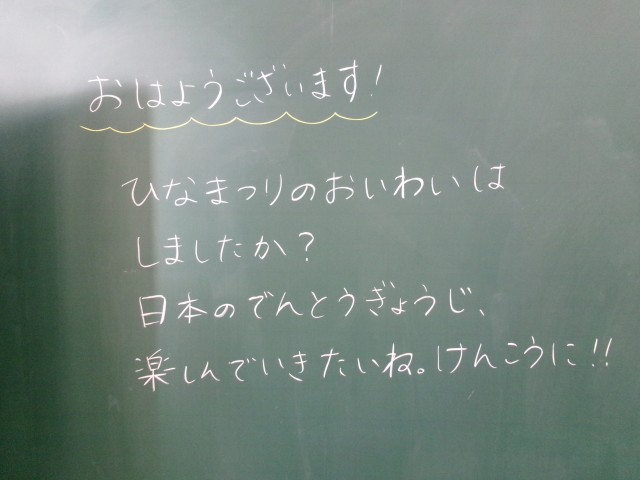 おはようございます!
ひなまつりのおいわいは
しましたか?
日本のでんとうぎょうじ、
楽しんでいきたいね。けんこうに!!